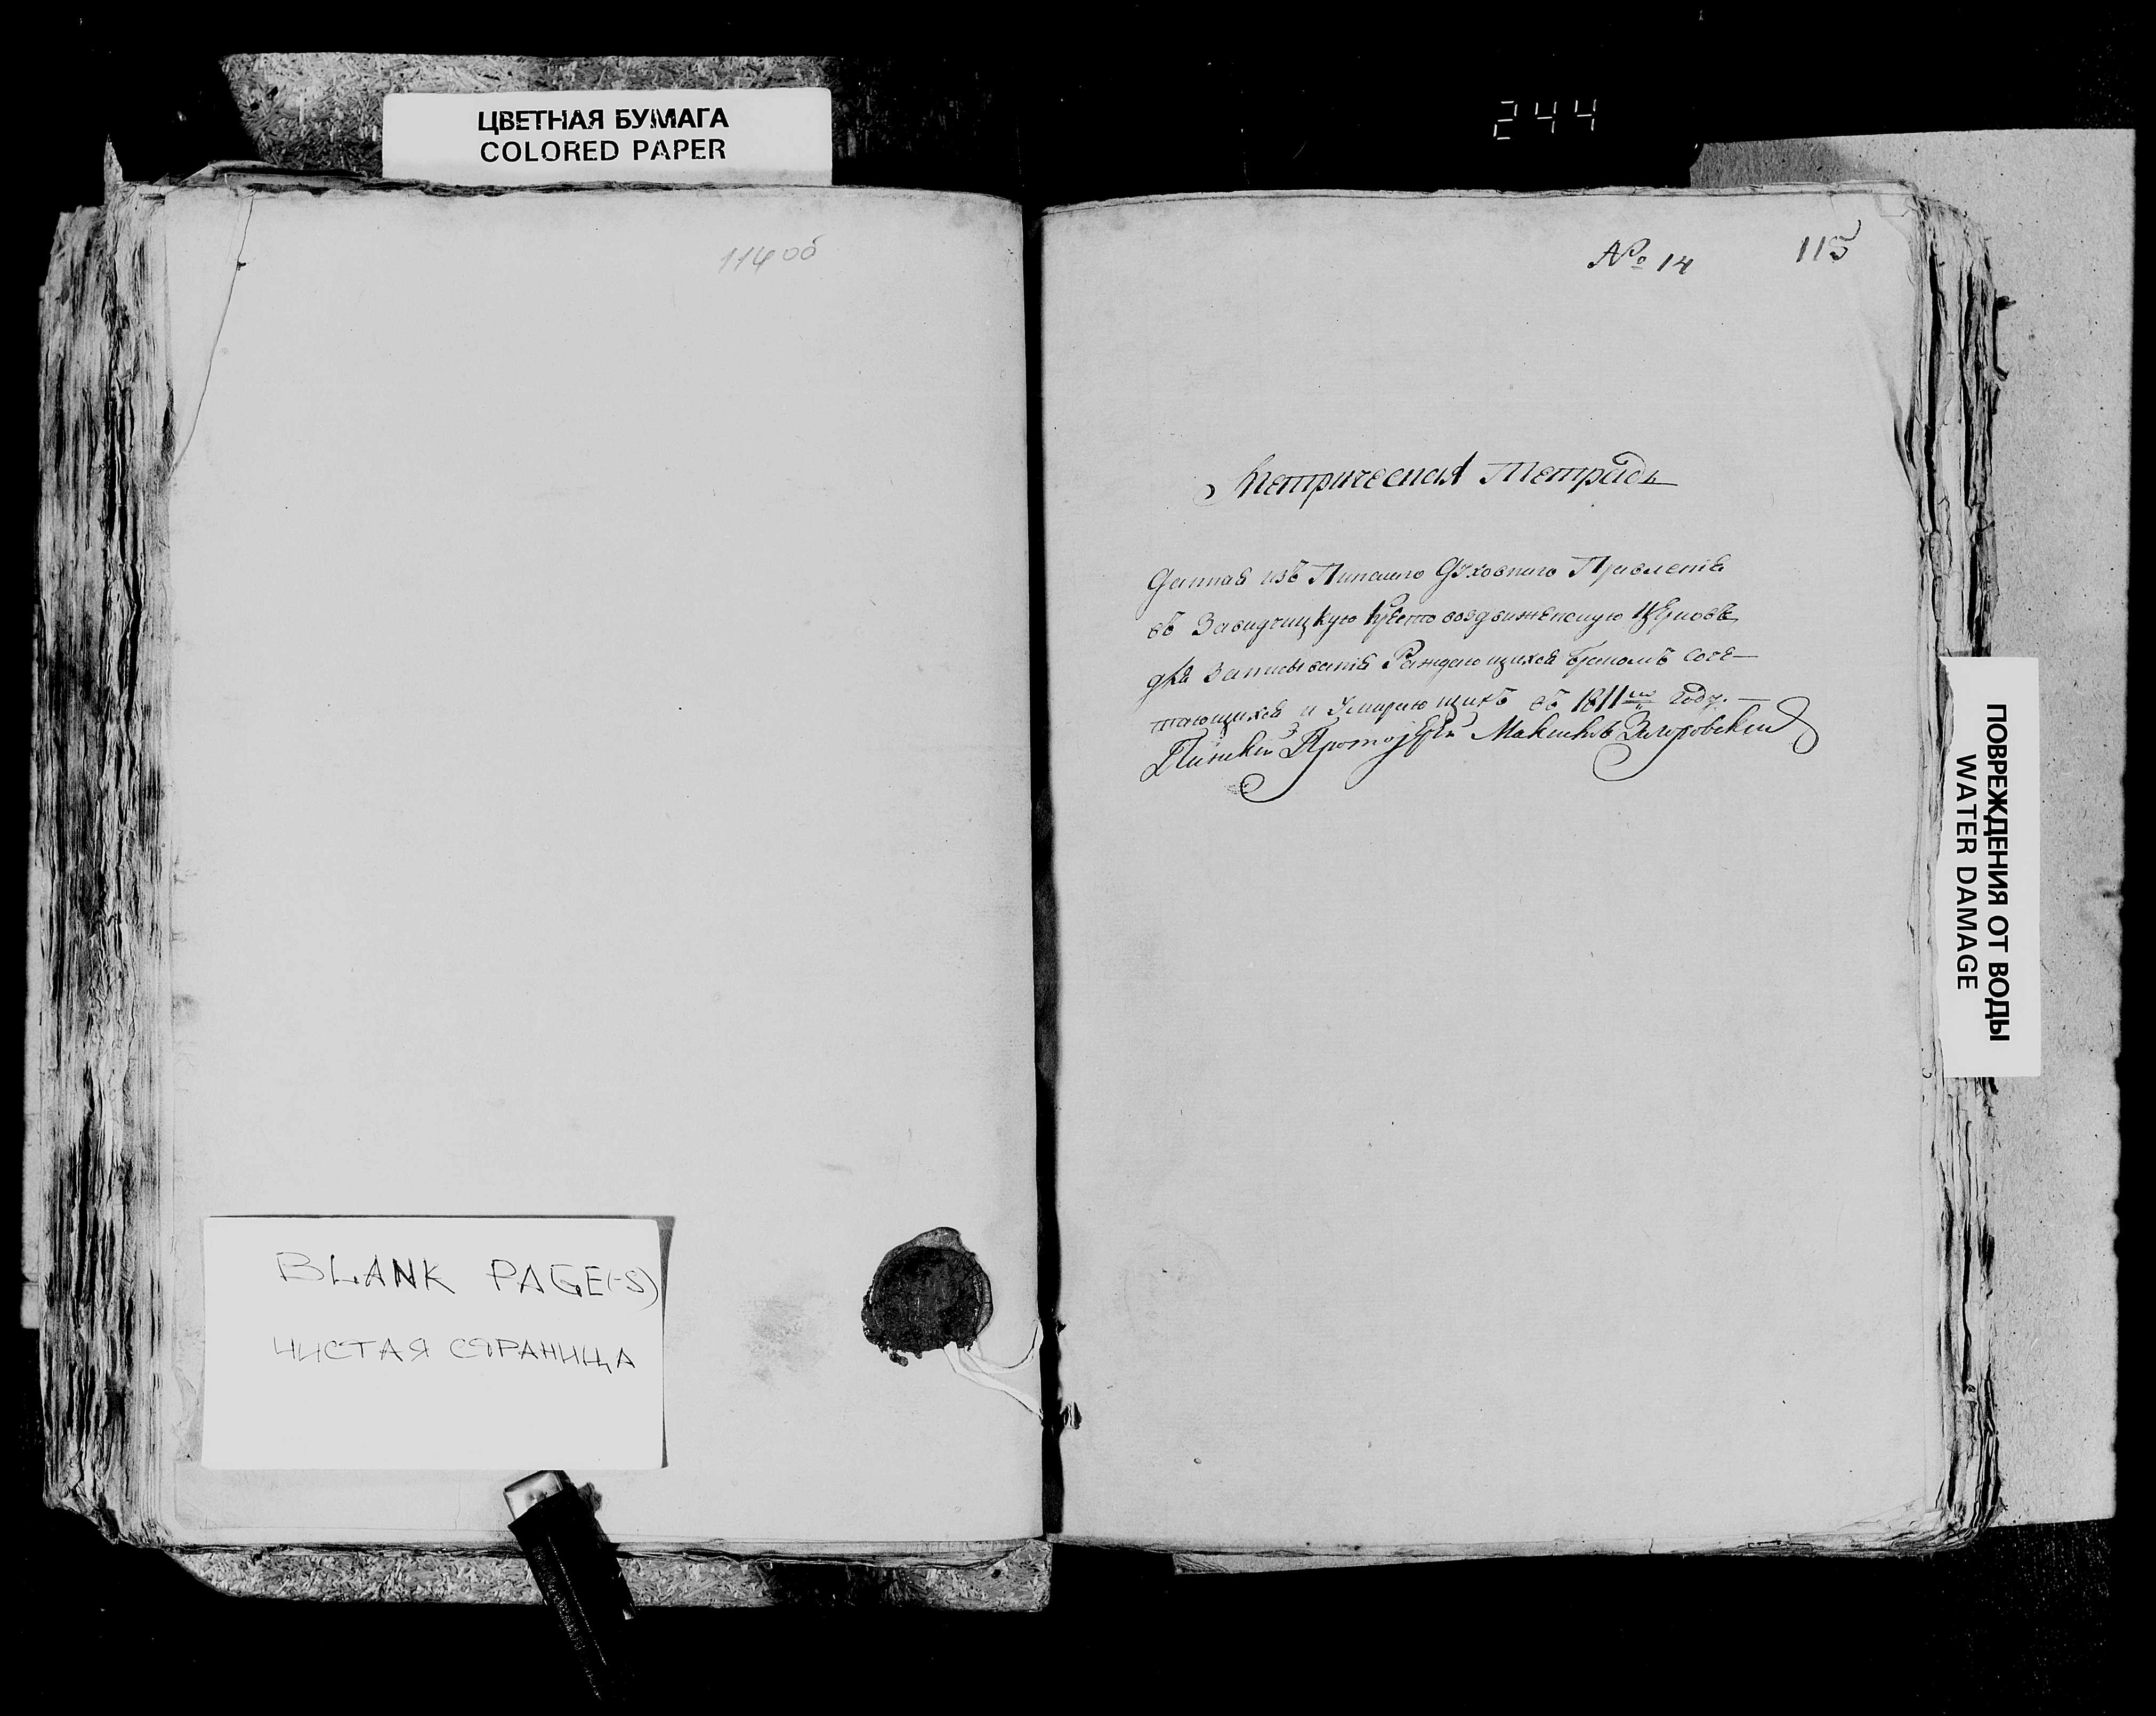 ЦВЕТНАЯ БУМАГА
COLORED PAPER
244
114 об
№ 14
115
Метрическая Тетрадь
Данная изъ Пинскаго Духовнаго Правленія
въ Завидчицкую Крестовоздвиженскую Церковь
для Записыванія Раждающихся Бракомъ Соче-
тающихся и Умирающихъ въ 1811м Году. —
Пинскій Протоіерей
BLANK PAGE(-S)
ЧИСТАЯ СТРАНИЦА
ПОВРЕЖДЕНИЯ ОТ ВОДЫ
WATER DAMAGE